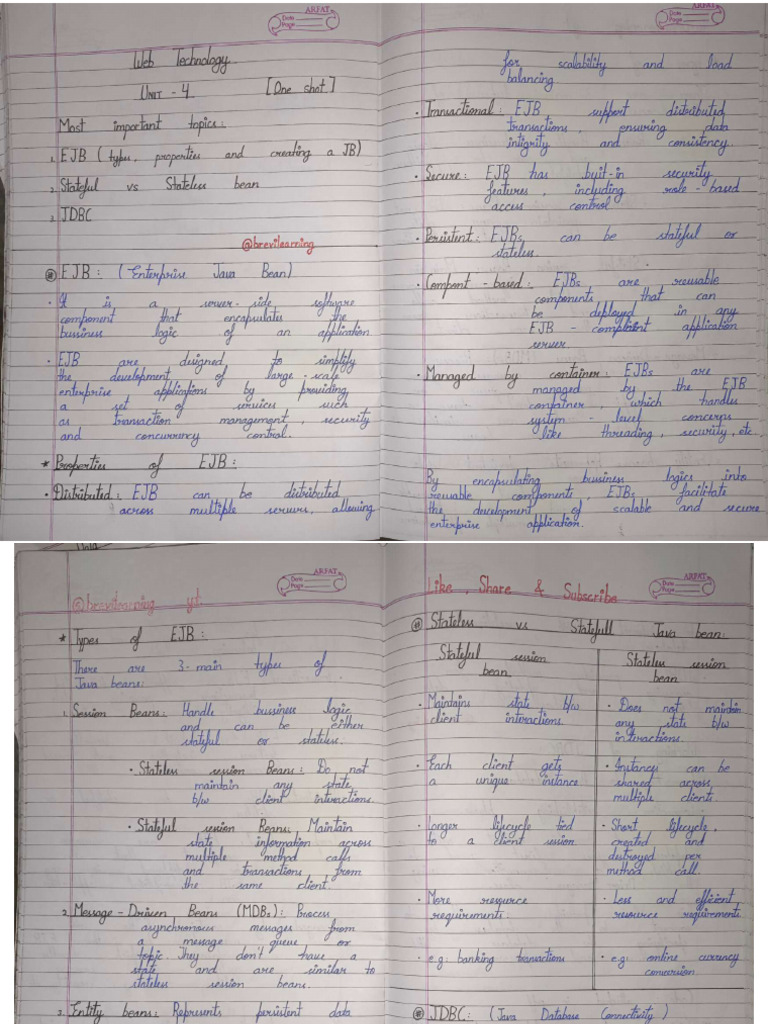 ARFAT
Date
Page
Web Technology
UNIT - 4 [One shot]
Most important topics:
1. EJB ( types, properties and creating a JB)
2. Stateful vs Stateless bean
3. JDBC
@brevilearning
# EJB: ( Enterprise Java Bean)
• It is a server-side software
component that encapsulates the
bussiness logic of an application
• EJB are designed to simplify
the development of large-scale
enterprise applications by providing
a set of services such
as transaction management, security
and concurrency control.
* Properties of EJB:
• Distributed: EJB can be distributed
across multiple servers, allowing
ARFAT
Date
Page
for scalability and load
balancing
• Transactional: EJB support distributed
transactions, ensuring data
intigrity and consistency.
• Secure: EJB has buit-in security
features, including role-based
access control
• Persistent: EJBs can be stateful or
stateless.
• Compont-based: EJBs are reusable
components that can
be deployed in any
EJB - application
server.
• Managed by container: EJBs are
managed by the EJB
container, which handles
system-level concerns
like threading, security, etc.
By encapsulating bussiness logics into
reusable components, EJBs facilitate
the development of scalable and secure
enterprise application.
ARFAT
Date
Page
@brevilearning yt.
* Types of EJB:
There are 3-main types of
Java beans:
1. Session Beans: Handle bussiness logic
and can be either
stateful or stateless.
• Stateless session Beans: Do not
maintain any state
b/w client interactions.
• Stateful session Beans: Maintain
state information across
multiple method calls
and transactions from
the same client.
2. Message-Driven Beans (MDBs): Process
asynchronous messages from
a message queue or
topic. They don't have a
state and are similar to
stateless session beans.
3. Entity beans: Represents persistent data
Like, Share & Subscribe
ARFAT
Date
Page
# Stateless vs Statefull Java bean:
Stateful session bean
• Maintains state b/w
client interactions.
• Each client gets
a unique instance
• Longer lifecycle tied
to a client session.
• More resource
requirements.
• e.g: banking transactions
Stateless session bean
• Does not maintain
any state b/w
interactions.
• Instances can be
shared across
multiple clients
• Short lifecycle,
created and
destroyed per
method call.
• Less and efficient
resource requirements.
• e.g: online currency
conversion.
# JDBC: ( Java Database Connectivity )